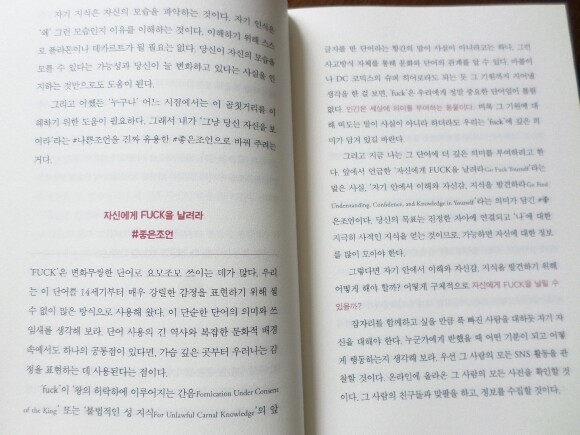 자기 지식은 자신의 모습을 파악하는 것이다. 자기 인식은
'왜' 그런 모습인지 이유를 이해하는 것이다. 이해하기 위해 스스
로 플라톤이나 데카르트가 될 필요는 없다. 당신이 자신의 모습을
모를 수 있다는 가능성과 당신이 늘 변화하고 있다는 사실을 인
지하는 것만으로도 도움이 된다.
그리고 어쨌든 '누구나' 어느 시점에서는 이 골칫거리를 이
해하기 위한 도움이 필요하다. 그래서 내가 '그냥 당신 자신을 보
이라'라는 #나쁜조언을 진짜 유용한 #좋은조언으로 바꿔 주려는
거다.
자신에게 FUCK을 날려라
#좋은조언
'FUCK'은 변화무쌍한 단어로 요모조모 쓰이는 데가 많다. 우리
는 이 단어를 14세기부터 매우 강렬한 감정을 표현하기 위해 셀
수 없이 많은 방식으로 사용해 왔다. 이 단순한 단어의 의미와 쓰
임새를 생각해 보라. 단어 사용의 긴 역사와 복잡한 문화적 배경
속에서도 하나의 공통점이 있다면, 가슴 깊은 곳부터 우러나는 감
정을 표현하는 데 사용된다는 점이다.
'fuck'이 '왕의 허락하에 이루어지는 간음Fornication Under Consent
of the King' 또는 '불법적인 성 지식For Unlawful Carnal Knowledge'의 앞
글자를 딴 단어라는 항간의 말이 사실이 아니라고는 하나, 그런
사고방식 자체를 통해 문화와 단어의 관계를 알 수 있다. 마블이
나 DC 코믹스의 슈퍼 히어로라도 되는 듯 그 기원까지 지어낼
생각을 한 걸 보면, 'fuck'은 우리에게 정말 중요한 단어임이 틀림
없다. 인간은 세상에 의미를 부여하는 동물이다. 비록 그 기원에 대
해 떠도는 말이 사실이 아니라 하더라도 우리는 'fuck'에 깊은 의
미가 담겨 있길 바란다.
그리고 지금 나는 그 단어에 더 깊은 의미를 부여하려고 한
다. 앞에서 언급한 '자신에게 FUCK을 날려라Go Fuck Yourself'라는
말은 사실, '자기 안에서 이해와 자신감, 지식을 발견하라Go Find
Understanding, Confidence, and Knowledge in Yourself'라는 의미가 담긴 #
좋은조언이다. 당신의 목표는 진정한 자아에 연결되고 '나'에 대한
지극히 사적인 지식을 얻는 것이므로, 가능하면 자신에 대한 정보
를 많이 모아야 한다.
그렇다면 자기 안에서 이해와 자신감, 지식을 발견하기 위해
어떻게 해야 할까? 어떻게 구체적으로 자신에게 FUCK을 날릴 수
있을까?
잠자리를 함께하고 싶을 만큼 푹 빠진 사람을 대하듯 자기 자
신을 대해야 한다. 누군가에게 반했을 때 어떤 기분이 되고 어떻
게 행동하는지 생각해 보라. 우선 그 사람의 모든 SNS 활동을 관
찰할 것이다. 온라인에 올라온 그 사람의 모든 사진을 확인할 것
이다. 그 사람의 친구들과 말을 하고, 정보를 수집할 것이다.